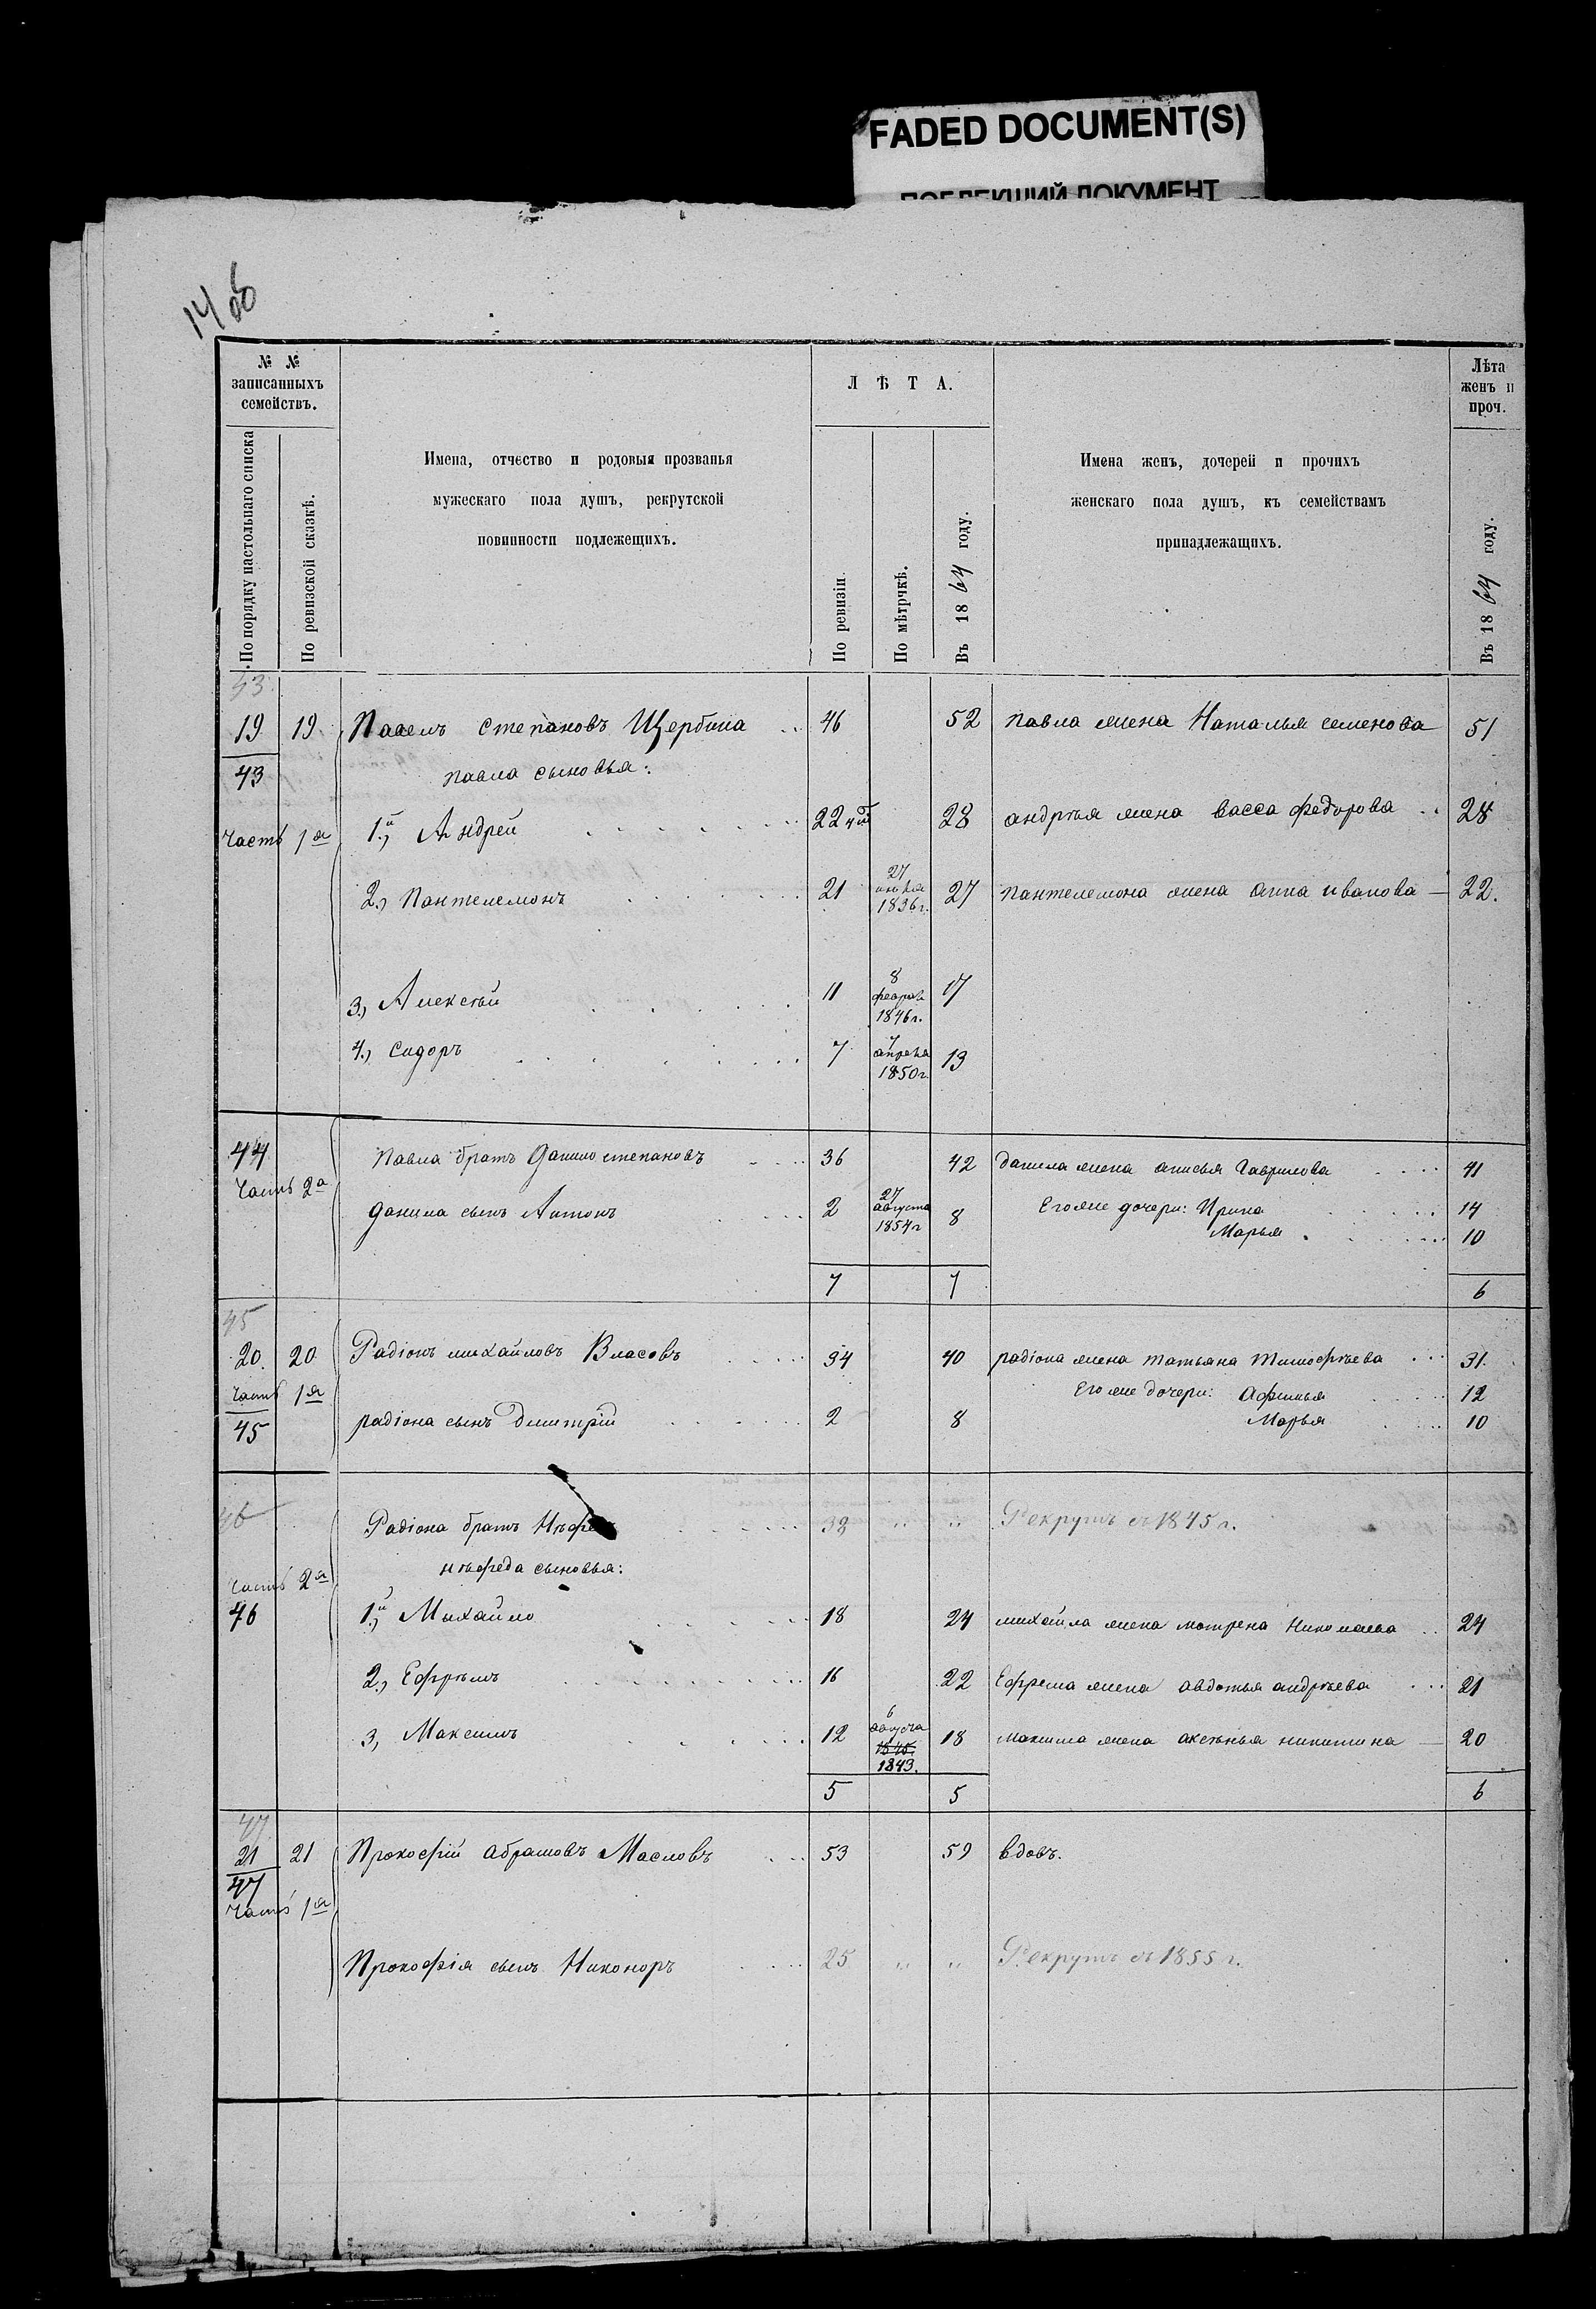 FADED DOCUMENT(S)
ПОБЛЕКШИЙ ДОКУМЕНТ
14 об
№ №
записанныхъ
семействъ.
По порядку настольнаго списка
По ревизской сказкѣ.
Имена, отчество и родовыя прозванья
мужескаго пола душъ, рекрутской
повинности подлежещихъ.
Л Ѣ Т А.
По ревизіи.
По мѣтрчкѣ.
Въ 1864 году.
Имена женъ, дочерей и прочихъ
женскаго пола душъ, къ семействамъ
принадлежащихъ.
Лѣта
женъ и
проч.
Въ 1864 году.
43.
19 19 Павелъ Степановъ Щербина 46 52 павла жена Наталья семенова 51
43 павла сыновья:
Часть 1я 1.й Андрей 22 28 андрѣя жена васса федорова 28
2., Пантелемонъ 21 27 июля 1836г. 27 пантелемона жена анна иванова 22.
3., Алексѣй 11 8 феврал 1846г. 17
4., Сидоръ 7 7 апреля 1850г. 13
44 Павла братъ Данило степановъ 36 42 данила жена анисья Гаврилова 41
Часть 2я
данила сынъ Антонъ 2 27 августа 1854г 8 Его же дочери: Ирина 14
Марья 10
7 7 6
45
20. 20 Радіонъ михайловъ Власовъ 34 40 радіона жена татьяна тимофѣева 31.
Часть 1я Его же дочери: Афимья 12
45 радіона сынъ Дмитрій 2 8 Марья 10
46 Радіона братъ 38 „ „ Рекрутъ съ 1845 г.
нѣфеда сыновья:
Часть 2я
46 1.й Михайло 18 24 михайла жена мотрена Николаева 24
2., Ефрѣмъ 16 22 Ефрема жена авдотья андрѣева 21
3, Максимъ 12 6 августа 1845. 1843. 18 максима жена аксѣнья никитина 20
5 5 6
47
21 21 Прокофій Абрамовъ Масловъ 53 59 вдовъ.
47
Часть 1я
Прокофія сынъ Никоноръ 25 „ „ Рекрутъ съ 1855 г.